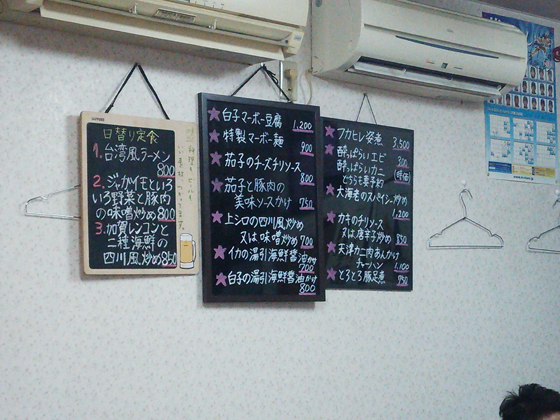 日替り定食
1. 台湾風ラーメン
800
2. ジャガイモといろ
いろ野菜と豚肉
の味噌炒め 800
3. 加賀レンコンと
二種海鮮の
四川風炒め 850
★白子マーボー豆腐
1,200
★特製マーボー麺
900
★茄子のチーズチリソース
800
★茄子と豚肉の
美味ソースかけ
750
★上シロの四川風炒め
又は味噌炒め 700
★イカの湯引海鮮醤油かけ
700
★白子の湯引海鮮醤油かけ
800
★フカヒレ姿煮 3,500
★酔っぱらいエビ 300
酔っぱらいカニ (時価)
どちらも要予約
★大海老のスパイシー炒め
1,200
★カキのチリソース
又は唐辛子炒め 850
★天津カニ肉あんかけ
チャーハン 1,100
★とろとろ豚足煮 750